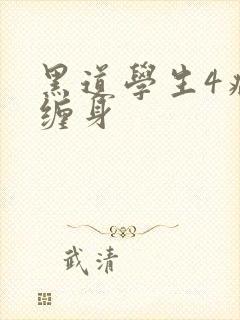 黑道學生4
缠身
武清